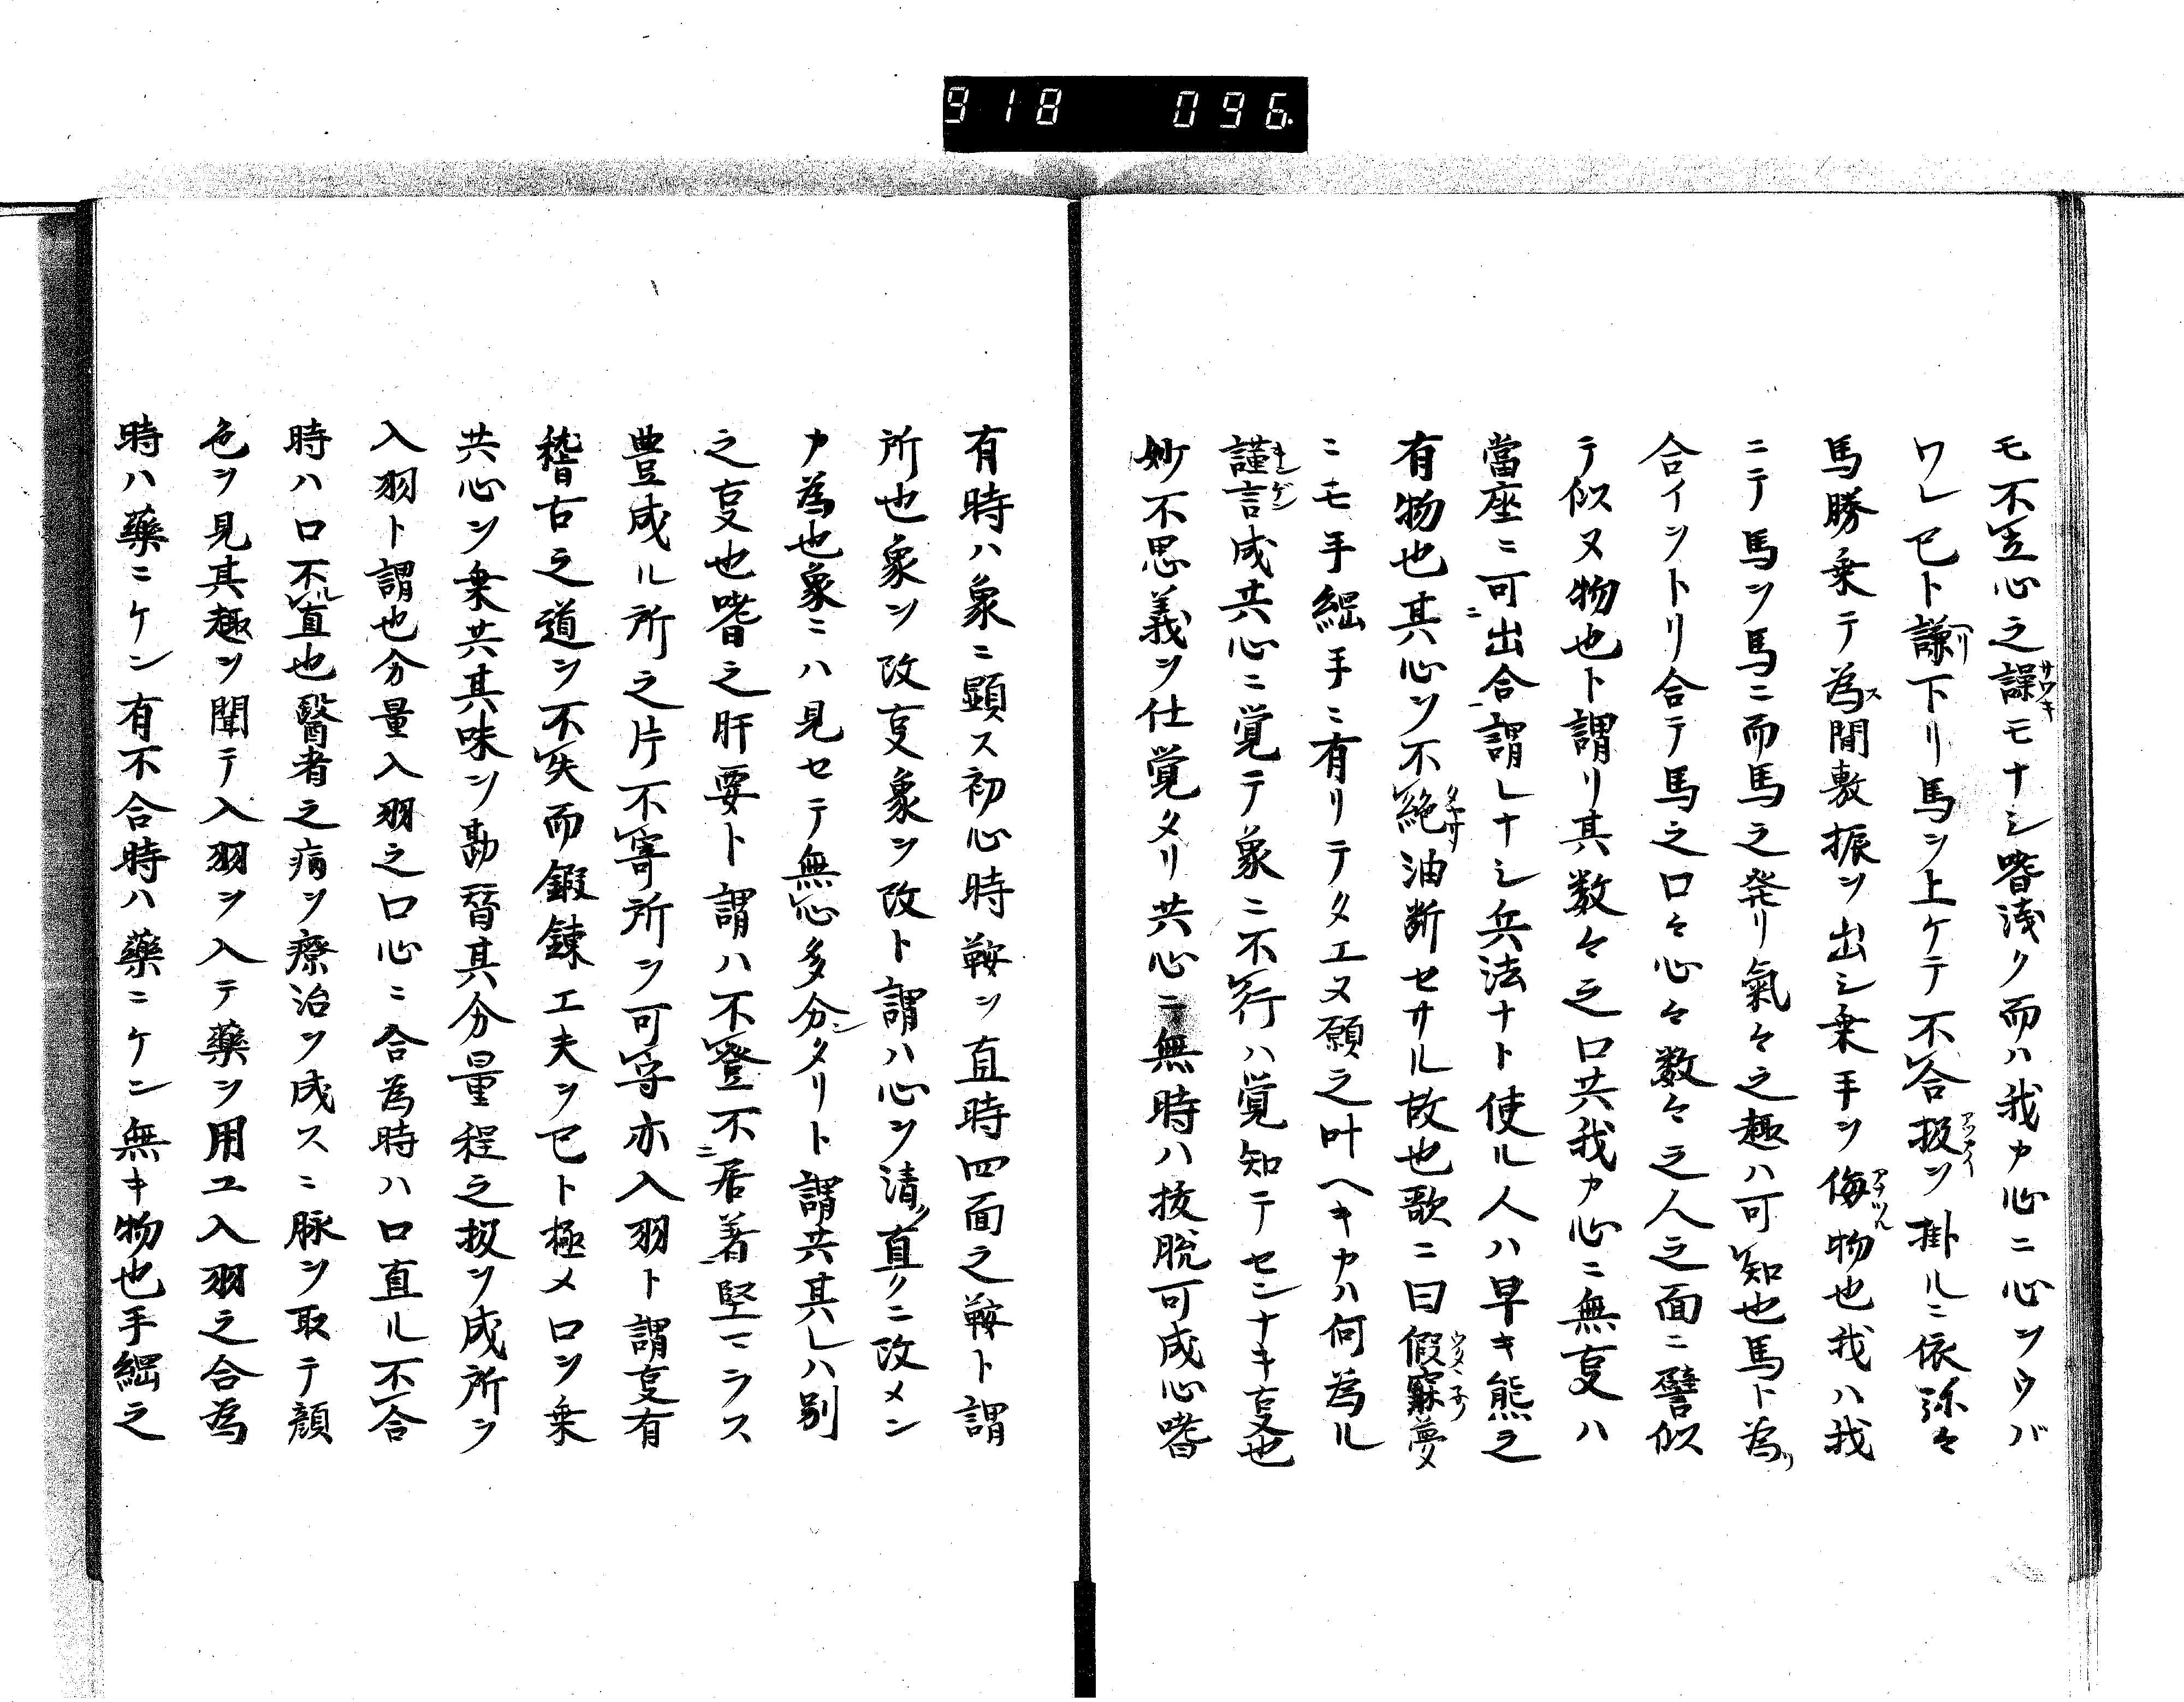 918 096.
モ不立心之譟サワキモナシ嗜淺ク而ハ我カ心ニ心ヲウバ
ワレ巳ト謙リ下リ馬ヲ上ケテ不合扱アツカイヲ掛ルニ依弥々
馬勝乗テ為ス間敷振ヲ出シ乗手ヲ侮アナツル物也我ハ我
ニテ馬ヲ馬ニ而馬之発リ氣々之趣ハ可知也馬ト為
合イヲトリ合テ馬之口々心々数々之人之面ニ譬似
テ似ヌ物也ト謂リ其数々之口共我カ心ニ無叓ハ
當座ニ可出合謂レナシ兵法ナト使ル人ハ早キ熊之
有物也其心ヲ不絶タヤサ油断セサル故也歌ニ曰假寐ウタヽネノ夢
ニモ手綱手ニ有リテタエヌ願之叶ヘキカハ何為ル
謹言キンゲン成共心ニ覚テ象ニ不行ハ覚知テセンナキ叓也
妙不思義ヲ仕覚タリ共心ニ無時ハ抜脱可成心嗜
有時ハ象ニ顕ス初心時鞍ヲ直時四面之鞍ト謂
所也象ヲ改叓象ヲ改ト謂ハ心ヲ清ク直クニ改メン
カ為也象ニハ見セテ無心多分ンタリト謂共其レハ別
之叓也嗜之肝要ト謂ハ不登不居着堅マラス
豊成ル所之片不寄所ヲ可守亦入羽ト謂叓有
稽古之道ヲ不失而鍛錬工夫ヲ巳ト極メ口ヲ乗
共心ヲ乗共其味ヲ勘醤其分量程之扱ヲ成所ヲ
入羽ト謂也分量入羽之口心ニ合為時ハ口直ル不合
時ハ口不直ル也醫者之病ヲ療治ヲ成スニ脉ヲ取テ顔
色ヲ見其趣ヲ聞テ入羽ヲ入テ藥ヲ用ユ入羽之合為
時ハ藥ニケン有不合時ハ藥ニケン無キ物也手綱之